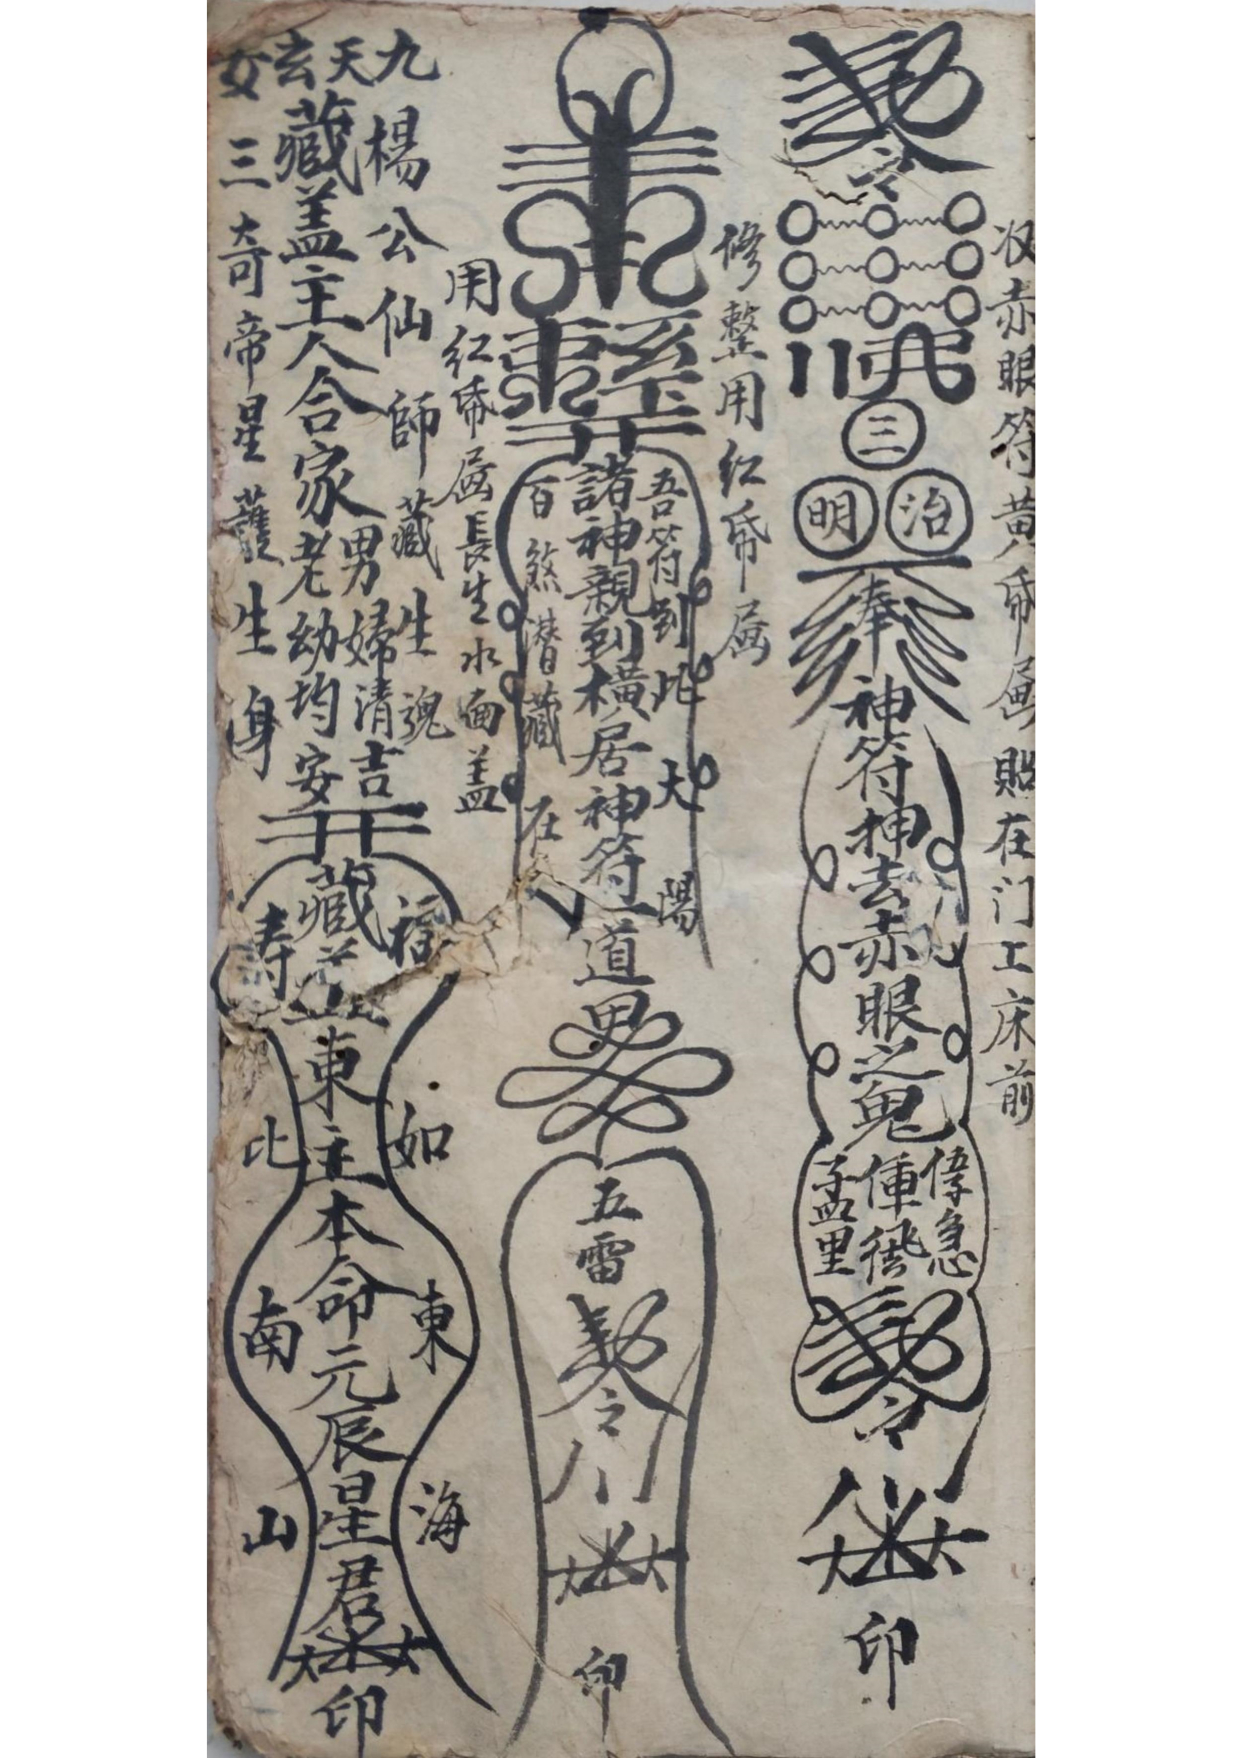 收赤眼符黄帋屬貼在门上床前
令
三
治明
奉
神符押去赤眼之鬼
急
孟里
令
印
修整用红帋属
吾符到此太陽在
諸神親到橫居神符一道
百煞潜藏
五雷
令
印
用红帋属長生水面盖
九天玄女
楊公仙師藏生魂
藏盖主人合家
男婦清吉
老幼均安
三奇帝星護生身
福如東海
藏盖東主本命元辰星君
壽比南山
印